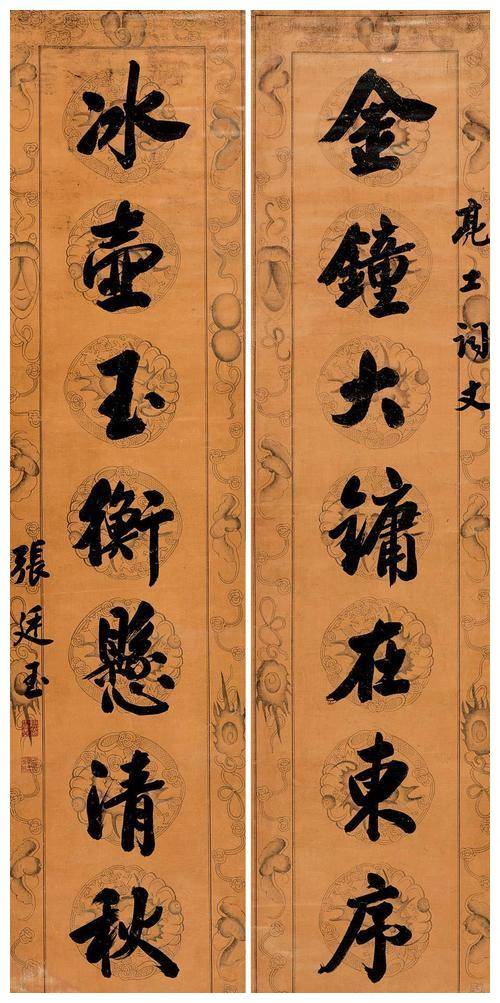 金鐘大鏞在東序
亮士詞丈
冰壺玉衡懸清秋
張廷玉